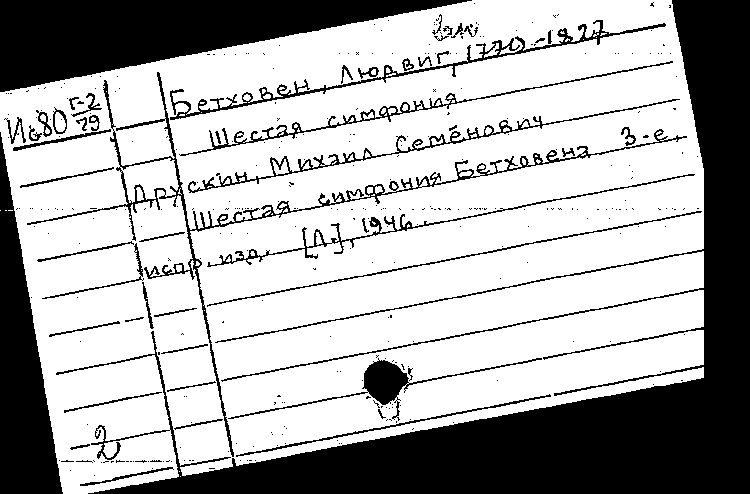 Бетховен, Людвиг, 1770-1827
И680 Г-2
29
Шестая симфония.
Друскин, Михаил Семёнович
Шестая симфония Бетховена 3-е,
испр. изд. [Л.], 1946.
2